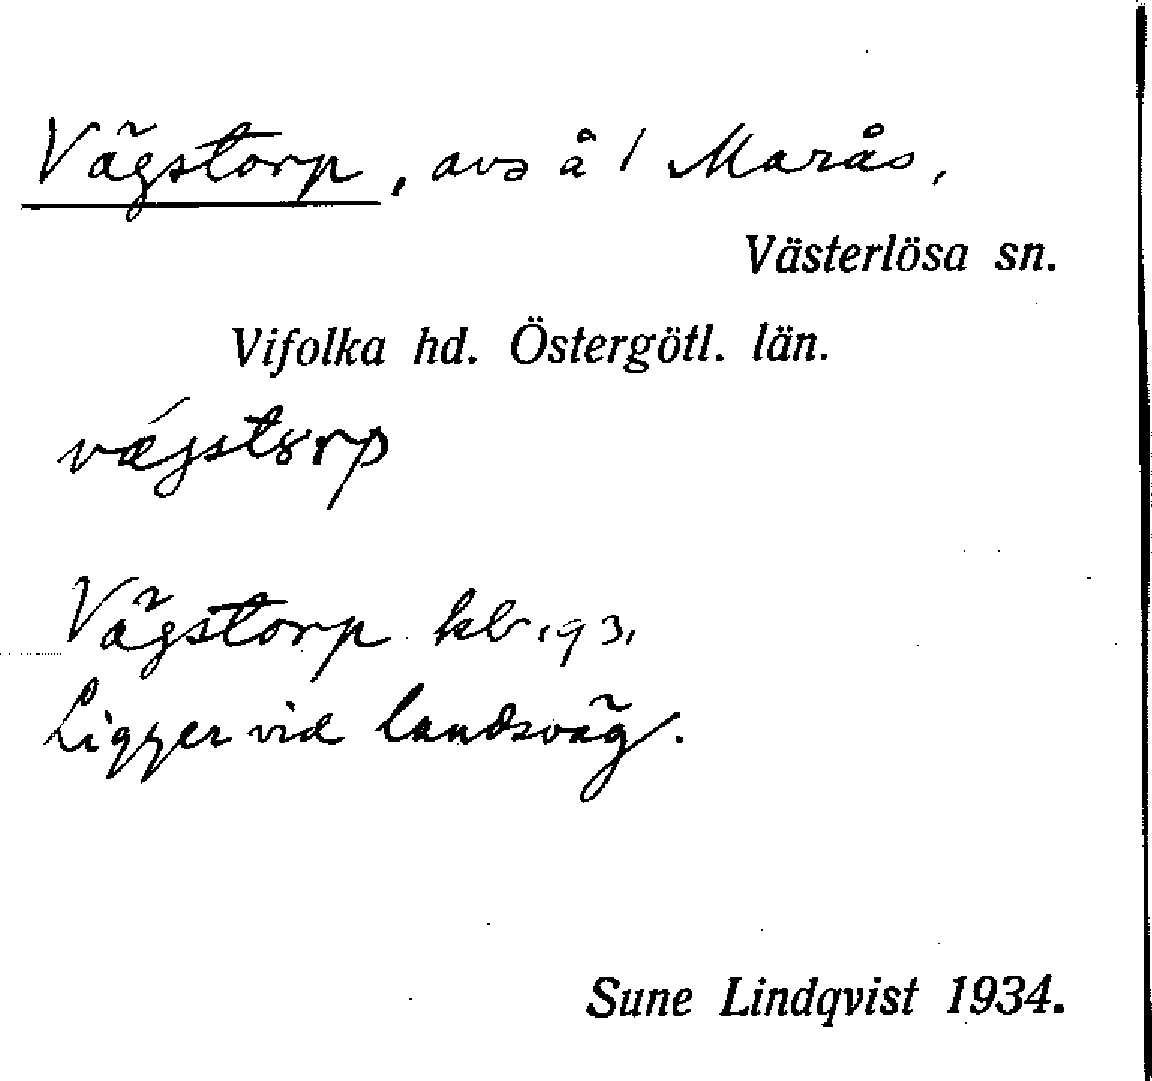 Vägstorp, avs å 1 Marås,
Västerlösa sn.
Vifolka hd. Östergötl. län.
vǽgstɤrp
Vägstorp kb. 193,
Ligger vid landsväg.
Sune Lindqvist 1934.